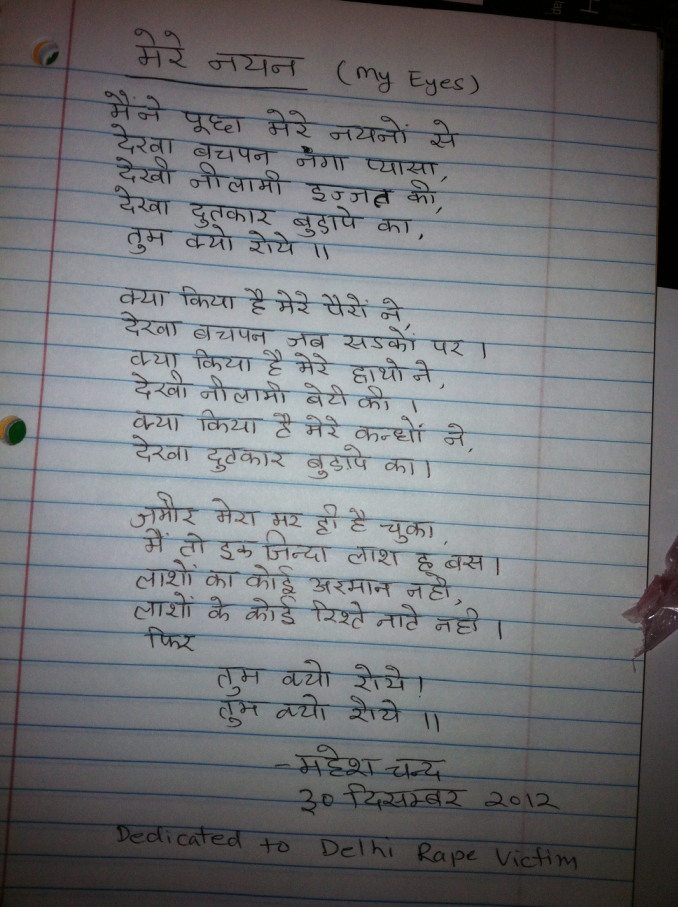 मेरे नयन (My Eyes)
मैंने पूछा मेरे नयनों से
देखा बचपन नंगा प्यासा,
देखी नीलामी इज्जत की,
देखा दुतकार बुडापे का,
तुम क्यो रोये ॥
क्या किया है मेरे पैरों ने,
देखा बचपन जब सडकों पर ।
क्या किया है मेरे हाथो ने,
देखी नीलामी बेटी की ।
क्या किया है मेरे कन्धों ने,
देखा दुतकार बुडापे का ।
ज़मीर मेरा मर ही है चुका,
मैं तो इक जिन्दा लाश हू बस ।
लाशों का कोई अरमान नही,
लाशों के कोई रिश्ते नाते नही ।
फिर
तुम क्यो रोये !
तुम क्यो रोये ॥
- महेश चन्द्र
३० दिसम्बर २०१२
Dedicated to Delhi Rape Victim